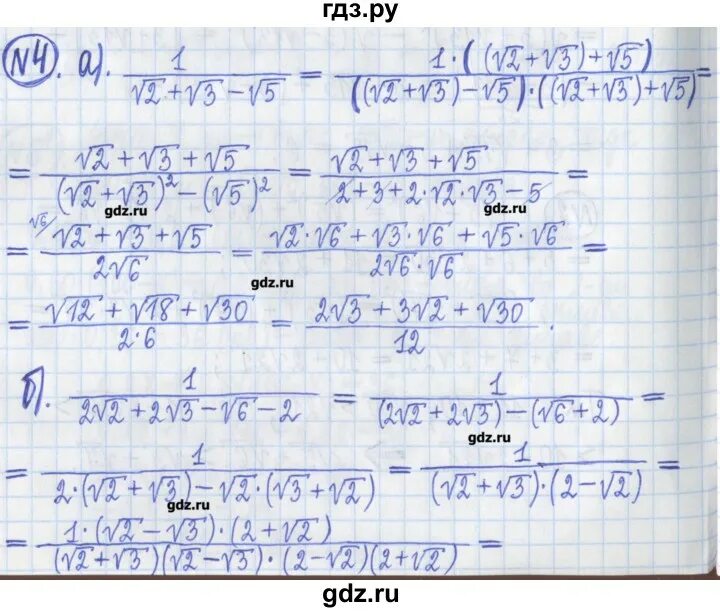 гдз.ру
№4. а). 1/(√2+√3-√5) = 1·((√2+√3)+√5)/(((√2+√3)-√5)·((√2+√3)+√5)) =
= (√2+√3+√5)/((√2+√3)²-(√5)²) = (√2+√3+√5)/(2+3+2·√2·√3-5) =
gdz.ru gdz.ru
= √6/ (√2+√3+√5)/(2√6) = (√2·√6+√3·√6+√5·√6)/(2√6·√6) =
gdz.ru
= (√12+√18+√30)/(2·6) = (2√3+3√2+√30)/12 .
б). 1/(2√2+2√3-√6-2) = 1/((2√2+2√3)-(√6+2)) =
gdz.ru
= 1/(2·(√2+√3)-√2·(√3+√2)) = 1/((√2+√3)·(2-√2)) =
gdz.ru
= 1·(√2-√3)·(2+√2)/((√2+√3)(√2-√3)·(2-√2)(2+√2)) =
gdz.ru